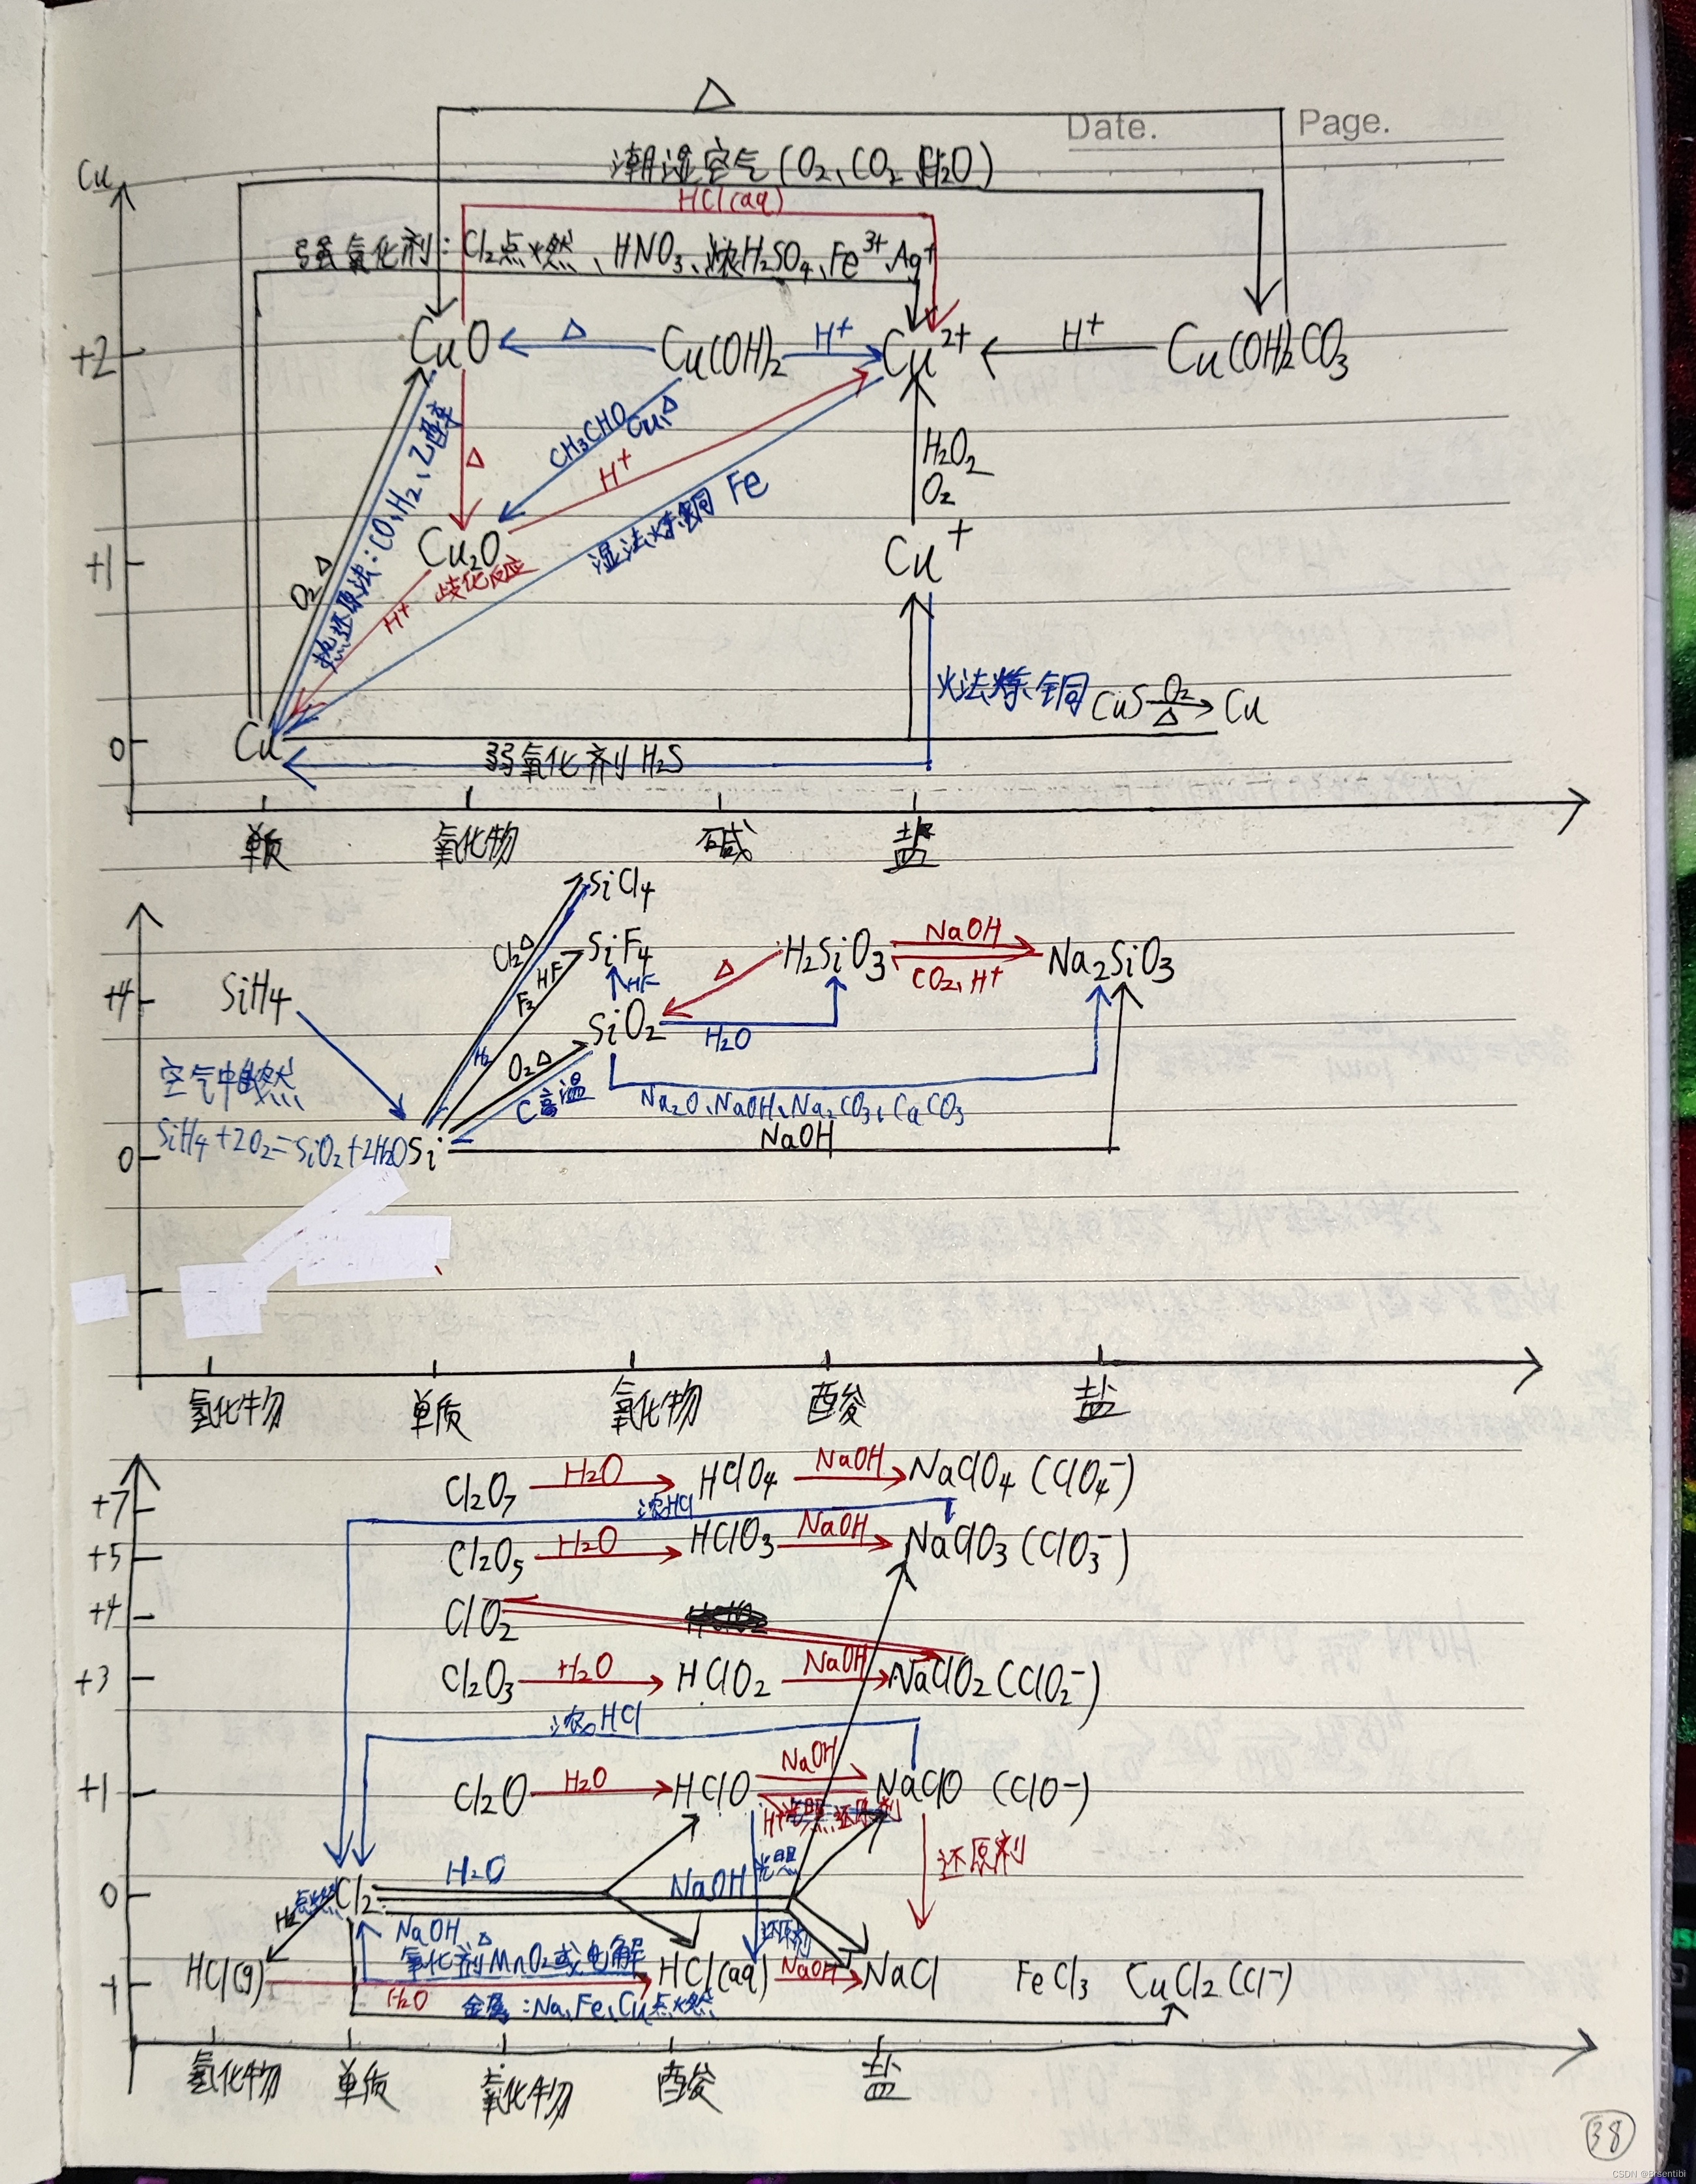 △
Date.
Page.
潮湿空气(O₂、CO₂、H₂O)
Cu
HCl(aq)
强氧化剂:Cl₂点燃、HNO₃、浓H₂SO₄、Fe³⁺、Ag⁺
+2
CuO
△
Cu(OH)₂
H⁺
Cu²⁺
H⁺
Cu(OH)₂CO₃
CH₃CHO
Cu,△
△
H⁺
H₂O₂
O₂
热还原法:CO、H₂、乙醇
O₂ △
湿法炼铜 Fe
+1
Cu₂O
Cu⁺
H⁺ 歧化反应
火法炼铜
CuS O₂ △ Cu
0
Cu
弱氧化剂 H₂S
单质
氧化物
碱
盐
SiCl₄
Cl₂ △
SiF₄
H₂SiO₃
NaOH
CO₂、H⁺
Na₂SiO₃
+4
SiH₄
F₂
HF
HF
△
SiO₂
H₂O
H₂
O₂ △
C高温
空气中自燃
Na₂O、NaOH、Na₂CO₃、CaCO₃
SiH₄+2O₂=SiO₂+2H₂O
0
Si
NaOH
氢化物
单质
氧化物
酸
盐
+7
Cl₂O₇
H₂O
HClO₄
NaOH
NaClO₄ (ClO₄⁻)
浓HCl
+5
Cl₂O₅
H₂O
HClO₃
NaOH
NaClO₃ (ClO₃⁻)
+4
ClO₂
+3
Cl₂O₃
H₂O
HClO₂
NaOH
NaClO₂ (ClO₂⁻)
浓HCl
+1
Cl₂O
H₂O
HClO
NaOH
NaClO (ClO⁻)
H⁺
还原剂
光照
还原剂
0
点燃
Cl₂
H₂O
NaOH
H₂
NaOH △
还原剂
氧化剂MnO₂或电解
-1
HCl(g)
H₂O
HCl(aq)
NaOH
NaCl
FeCl₃
CuCl₂ (Cl⁻)
金属:Na、Fe、Cu点燃
氢化物
单质
氧化物
酸
盐
38
CSDN @Eisentibi